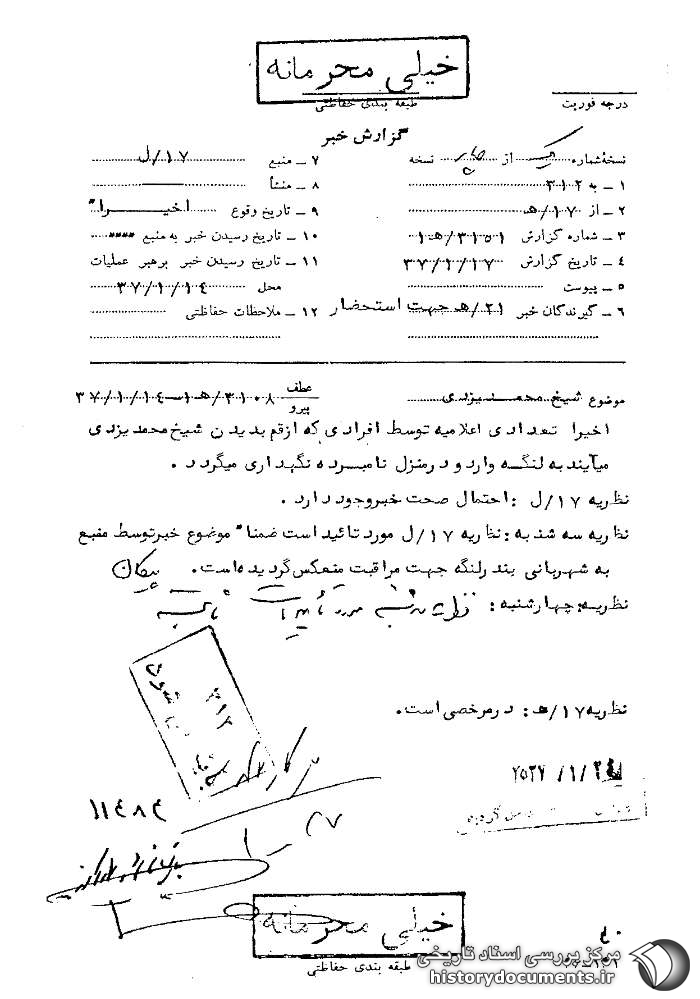 خیلی محرمانه
طبقه بندی حفاظتی
درجه فوریت
گزارش خبر
نسخهٔ شماره یک از چهار نسخه
۱ ـ به ۳۱۲
۲ ـ از ۱۷/هـ
۳ ـ شماره گزارش ۳۱۵۱/هـ۱
۴ ـ تاریخ گزارش ۳۷/۱/۱۷
۵ ـ پیوست
۶ ـ گیرندگان خبر ۲۱/هـ جهت استحضار
۷ ـ منبع ۱۷/ل
۸ ـ منشأ
۹ ـ تاریخ وقوع اخیراً
۱۰ ـ تاریخ رسیدن خبر به منبع
۱۱ ـ تاریخ رسیدن خبر برهبر عملیات
محل ۳۷/۱/۱۴
۱۲ ـ ملاحظات حفاظتی
موضوع شیخ محمد یزدی
عطف
پیرو
۳۱۰۸/هـ۱ـ۳۷/۱/۱۴
اخیرا تعدادی اعلامیه توسط افرادی که ازقم بدیدن شیخ محمد یزدی
میآیند به لنگه وارد و در منزل نامبرده نگهداری میگردد .
نظریه ۱۷/ل : احتمال صحت خبر وجود دارد .
نظریه سه شنبه : نظریه ۱۷/ل مورد تائید است ضمناً موضوع خبر توسط منبع
به شهربانی بندرلنگه جهت مراقبت منعکس گردیده است . پیکان
نظریه چهارشنبه : نظریه سه شنبه مورد تأیید است
نظریه ۱۷/هـ : در مرخصی است .
۳۱۲
۲۵۳۷/۱/۲۴
۱۱۴۸۴
خیلی محرمانه
طبقه بندی حفاظتی
۴۰
مرکز بررسی اسناد تاریخی
historydocuments.ir